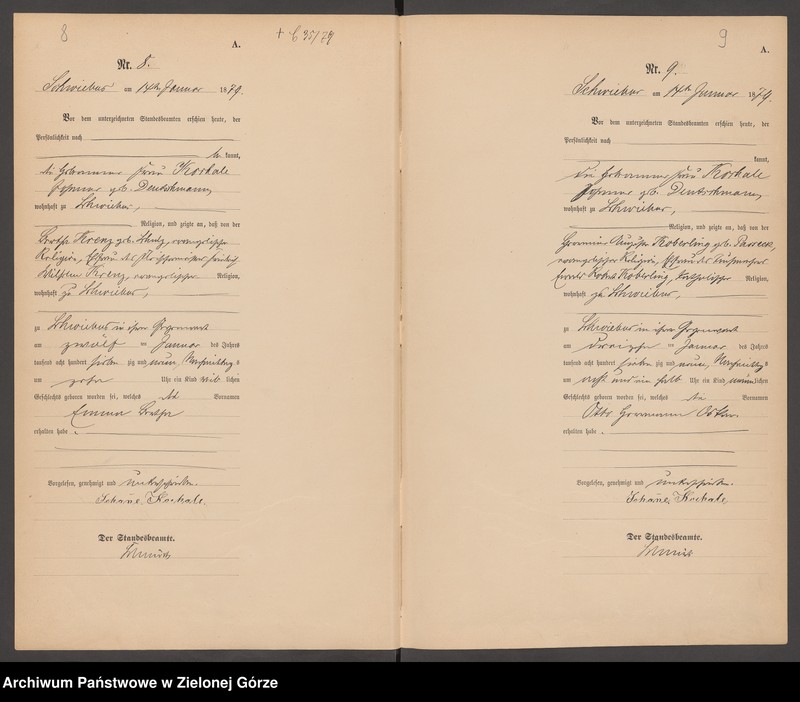 8
A.
+ C 35/79
Nr. 8.
Schwiebus am 14ten Januar 1879.
Vor dem unterzeichneten Standesbeamten erschien heute, der
Persönlichkeit nach
be kannt,
die Hebamme Frau Koschale
geb. Deutschmann,
wohnhaft zu Schwiebus,
Religion, und zeigte an, daß von der
Bertha Krenz geb. Schulz, evangelischer
Religion, Ehefrau des
Wilhelm Krenz, evangelischer Religion,
wohnhaft zu Schwiebus,
zu Schwiebus in ihrer Gegenwart
am zwölften Januar des Jahres
tausend acht hundert siebenzig und neun, Nachmittags
um Uhr ein Kind weiblichen
Geschlechts geboren worden sei, welches die Vornamen
Emma Bertha
erhalten habe.
Vorgelesen, genehmigt und unterschrieben.
Der Standesbeamte.
9
A.
Nr. 9.
Schwiebus am 14ten Januar 1879.
Vor dem unterzeichneten Standesbeamten erschien heute, der
Persönlichkeit nach
kannt,
die Hebamme Frau Koschale
geb. Deutschmann,
wohnhaft zu Schwiebus,
Religion, und zeigte an, daß von der
Auguste Koberling geb.
evangelischer Religion, Ehefrau des Tuchmachers
Robert Koberling, katholischer Religion,
wohnhaft zu Schwiebus,
zu Schwiebus in ihrer Gegenwart
am Januar des Jahres
tausend acht hundert siebenzig und neun, Nachmittags
um acht und ein halb Uhr ein Kind männlichen
Geschlechts geboren worden sei, welches die Vornamen
Otto Hermann
erhalten habe.
Vorgelesen, genehmigt und unterschrieben.
Der Standesbeamte.
Archiwum Państwowe w Zielonej Górze